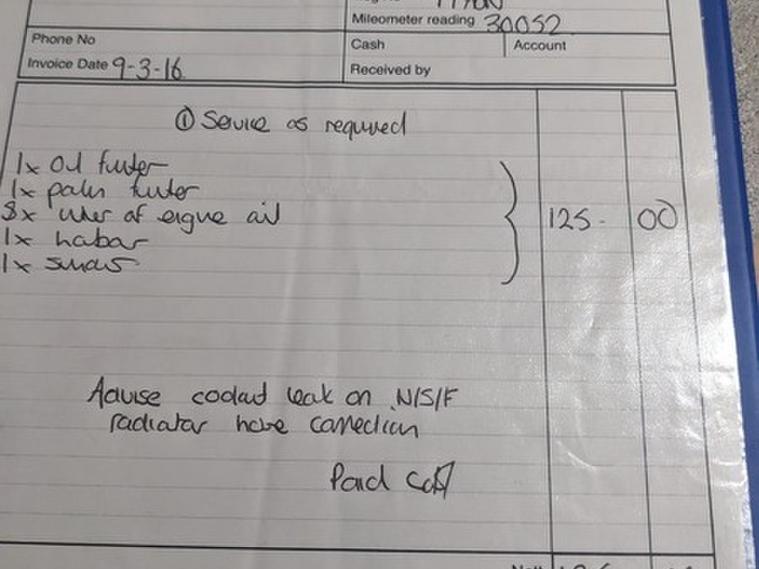 Mileometer reading 30052
Phone No
Cash
Account
Invoice Date 9-3-16
Received by
① Service as required
1x Oil filter
1x pollen filter
8x liter of engine oil
1x labour
1x
125-00
Advise coolant leak on N/S/F
radiator hose connection
Paid